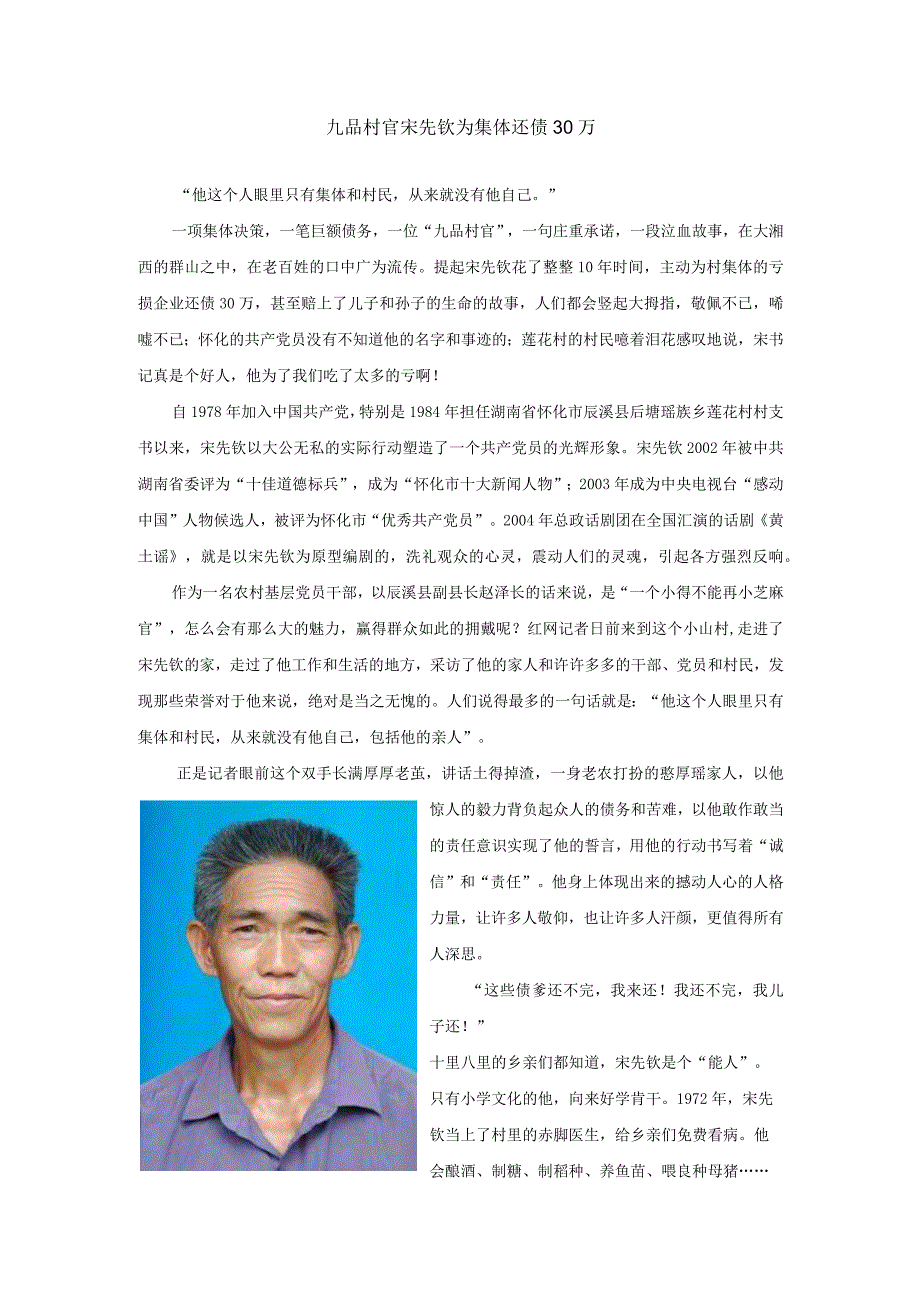 九品村官宋先钦为集体还债30万
“他这个人眼里只有集体和村民，从来就没有他自己。”
一项集体决策，一笔巨额债务，一位“九品村官”，一句庄重承诺，一段泣血故事，在大湘
西的群山之中，在老百姓的口中广为流传。提起宋先钦花了整整10年时间，主动为村集体的亏
损企业还债30万，甚至赔上了儿子和孙子的生命的故事，人们都会竖起大拇指，敬佩不已，唏
嘘不已；怀化的共产党员没有不知道他的名字和事迹的；莲花村的村民噫着泪花感叹地说，宋书
记真是个好人，他为了我们吃了太多的亏啊！
自1978年加入中国共产党，特别是1984年担任湖南省怀化市辰溪县后塘瑶族乡莲花村村支
书以来，宋先钦以大公无私的实际行动塑造了一个共产党员的光辉形象。宋先钦2002年被中共
湖南省委评为“十佳道德标兵”，成为“怀化市十大新闻人物”；2003年成为中央电视台“感动
中国”人物候选人，被评为怀化市“优秀共产党员”。2004年总政话剧团在全国汇演的话剧《黄
土谣》，就是以宋先钦为原型编剧的，洗礼观众的心灵，震动人们的灵魂，引起各方强烈反响。
作为一名农村基层党员干部，以辰溪县副县长赵泽长的话来说，是“一个小得不能再小芝麻
官”，怎么会有那么大的魅力，赢得群众如此的拥戴呢？红网记者日前来到这个小山村,走进了
宋先钦的家，走过了他工作和生活的地方，采访了他的家人和许许多多的干部、党员和村民，发
现那些荣誉对于他来说，绝对是当之无愧的。人们说得最多的一句话就是：“他这个人眼里只有
集体和村民，从来就没有他自己，包括他的亲人”。
正是记者眼前这个双手长满厚厚老茧，讲话土得掉渣，一身老农打扮的憨厚瑶家人，以他
惊人的毅力背负起众人的债务和苦难，以他敢作敢当
的责任意识实现了他的誓言，用他的行动书写着“诚
信”和“责任”。他身上体现出来的撼动人心的人格
力量，让许多人敬仰，也让许多人汗颜，更值得所有
人深思。
“这些债爹还不完，我来还！我还不完，我儿
子还！”
十里八里的乡亲们都知道，宋先钦是个“能人”。
只有小学文化的他，向来好学肯干。1972年，宋先
钦当上了村里的赤脚医生，给乡亲们免费看病。他
会酿酒、制糖、制稻种、养鱼苗、喂良种母猪……